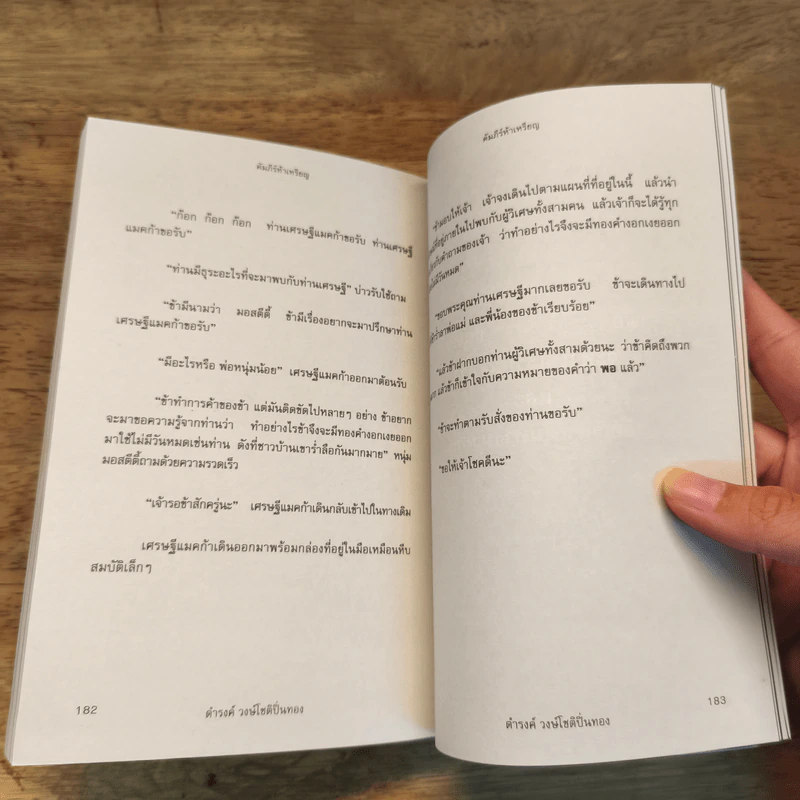 คัมภีร์ห้าเหรียญ
"ก๊อก ก๊อก ก๊อก ท่านเศรษฐีแมคก้าขอรับ ท่านเศรษฐี
แมคก้าขอรับ"
"ท่านมีธุระอะไรที่จะมาพบกับท่านเศรษฐี" บ่าวรับใช้ถาม
"ข้ามีนามว่า มอสตีดี้ ข้ามีเรื่องอยากจะมาปรึกษาท่าน
เศรษฐีแมคก้าขอรับ"
"มีอะไรหรือ พ่อหนุ่มน้อย" เศรษฐีแมคก้าออกมาต้อนรับ
"ข้าทำการค้าของข้า แต่มันติดขัดไปหลายๆ อย่าง ข้าอยาก
จะมาขอความรู้จากท่านว่า ทำอย่างไรข้าจึงจะมีทองคำงอกเงยออก
มาใช้ไม่มีวันหมดเช่นท่าน ดังที่ชาวบ้านเขาร่ำลือกันมากมาย" หนุ่ม
มอสตีดี้ถามด้วยความรวดเร็ว
"เจ้ารอข้าสักครู่นะ" เศรษฐีแมคก้าเดินกลับเข้าไปในทางเดิม
เศรษฐีแมคก้าเดินออกมาพร้อมกล่องที่อยู่ในมือเหมือนหีบ
สมบัติเล็กๆ
182
ดำรงค์ วงษ์โชติปิ่นทอง
คัมภีร์ห้าเหรียญ
"ข้ามอบให้เจ้า เจ้าจงเดินไปตามแผนที่ที่อยู่ในนี้ แล้วนำ
ที่อยู่ภายในไปพบกับผู้วิเศษทั้งสามคน แล้วเจ้าก็จะได้รู้ทุก
กับคำถามของเจ้า ว่าทำอย่างไรจึงจะมีทองคำงอกเงยออก
ไม่มีวันหมด"
"ขอบพระคุณท่านเศรษฐีมากเลยขอรับ ข้าจะเดินทางไป
ร่ำลาพ่อแม่ และพี่น้องของข้าเรียบร้อย"
"แล้วข้าฝากบอกท่านผู้วิเศษทั้งสามด้วยนะ ว่าข้าคิดถึงพวก
แล้วข้าก็เข้าใจกับความหมายของคำว่า พอ แล้ว"
"ข้าจะทำตามรับสั่งของท่านขอรับ"
"ขอให้เจ้าโชคดีนะ"
183
ดำรงค์ วงษ์โชติปิ่นทอง